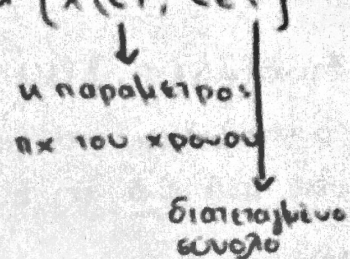 κ παραμετρος
πχ του χρονου
διατεταγμενο
συνολο